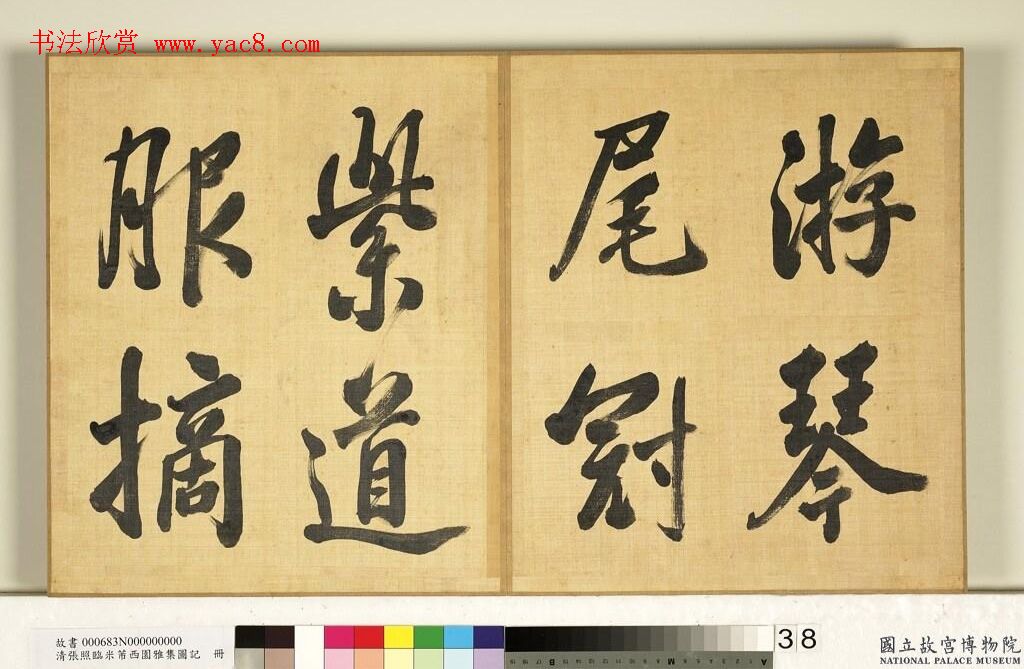 书法欣赏 www.yac8.com
游琴
尾冠
紫道
服摘
故書 000683N000000000
清張照臨米芾西園雅集圖記 冊
38
國立故宮博物院
NATIONAL PALACE MUSEUM